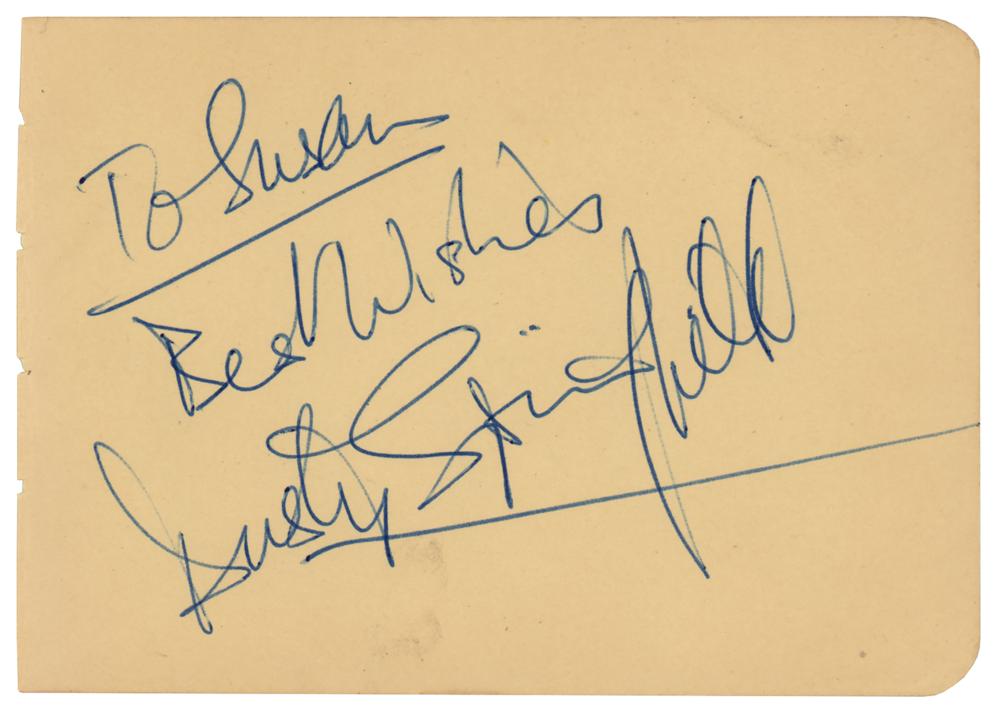 To Susan
Best Wishes
Dusty Springfield